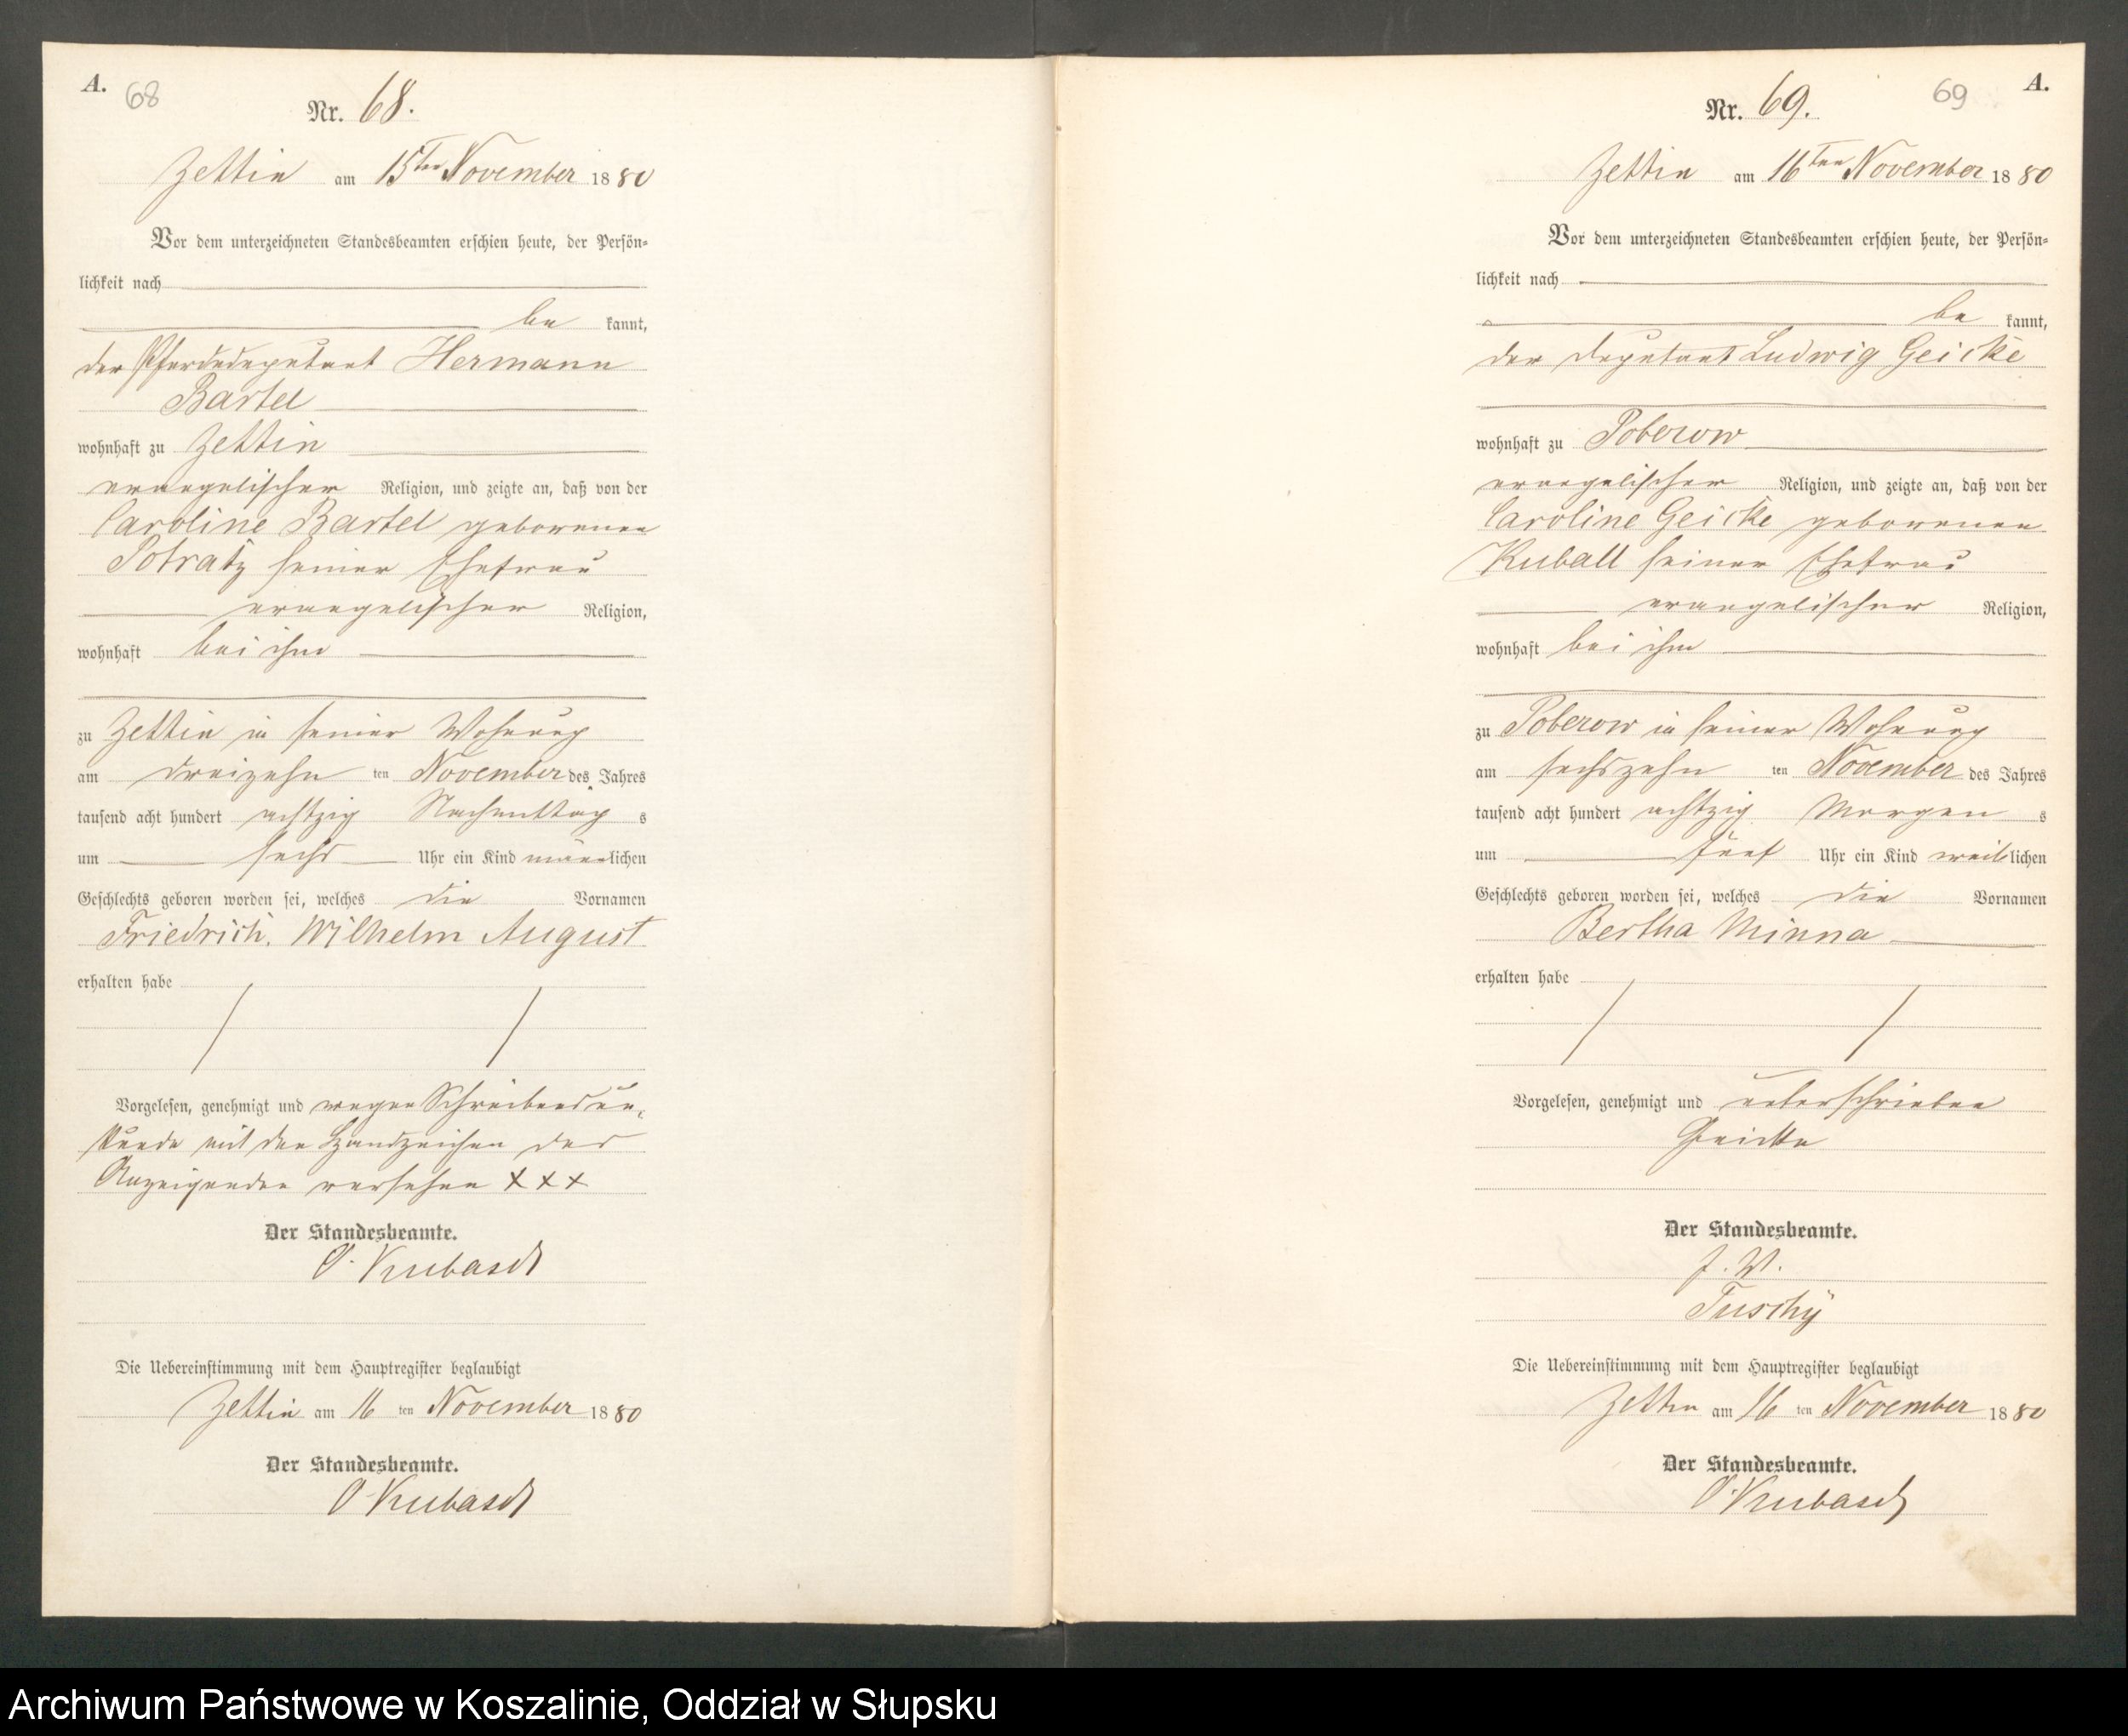 A.
68
Nr. 68.
Zettin am 15ten November 1880
Vor dem unterzeichneten Standesbeamten erschien heute, der Persön-
lichkeit nach
be kannt,
der Pferdedeputant Hermann
Bartel
wohnhaft zu Zettin
evangelischer Religion, und zeigte an, daß von der
Caroline Bartel geborenen
Potratz seiner Ehefrau
evangelischer Religion,
wohnhaft bei ihm
zu Zettin in seiner Wohnung
am dreizehn ten November des Jahres
tausend acht hundert achtzig Nachmittag s
um sechs Uhr ein Kind männlichen
Geschlechts geboren worden sei, welches die Vornamen
Friedrich Wilhelm August
erhalten habe
Vorgelesen, genehmigt und wegen Schreibensun-
kunde mit den Handzeichen des
Anzeigenden versehen XXX
Der Standesbeamte.
O. Kubasch
Die Uebereinstimmung mit dem Hauptregister beglaubigt
Zettin am 16 ten November 1880
Der Standesbeamte.
O Kubasch
A.
69
Nr. 69.
Zettin am 16ten November 1880
Vor dem unterzeichneten Standesbeamten erschien heute, der Persön-
lichkeit nach
be kannt,
der Deputant Ludwig Geicke
wohnhaft zu Poberow
evangelischer Religion, und zeigte an, daß von der
Caroline Geicke geborenen
Kuball seiner Ehefrau
evangelischer Religion,
wohnhaft bei ihm
zu Poberow in seiner Wohnung
am sechszehn ten November des Jahres
tausend acht hundert achtzig Morgen s
um fünf Uhr ein Kind weiblichen
Geschlechts geboren worden sei, welches die Vornamen
Bertha Minna
erhalten habe
Vorgelesen, genehmigt und unterschrieben
Geicke
Der Standesbeamte.
J. V.
Tuschy
Die Uebereinstimmung mit dem Hauptregister beglaubigt
Zettin am 16 ten November 1880
Der Standesbeamte.
O. Kubasch
Archiwum Państwowe w Koszalinie, Oddział w Słupsku